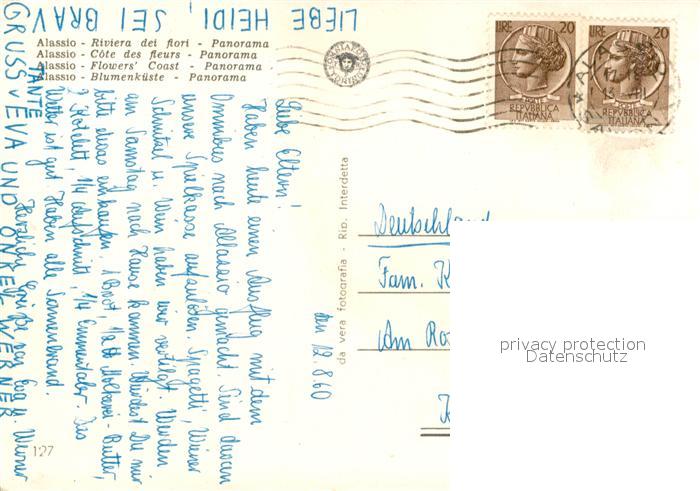 LIEBE HEIDI, SEI BRAV
Alassio - Riviera dei fiori - Panorama
Alassio - Côte des fleurs - Panorama
Alassio - Flowers' Coast - Panorama
Alassio - Blumenküste - Panorama
LIRE 20
REPVBBLICA
ITALIANA
LIRE 20
REPVBBLICA
ITALIANA
Liebe Eltern!
Haben heute einen Ausflug mit dem
Omnibus nach Alassio gemacht. Sind daran
unsere Spielkasse aufzulösen. Spagetti, Wiener
Schnitzel u. Wein haben wir vertilgt. Werden
am Samstag nach Hause kommen. Würdest Du mir
bitte etwas einkaufen. 1 Brot, 1/2 Molkerei-Butter,
2 Kotelett, 1/4 Aufschnitt, 1/4 Emmentaler. Das
Wetter ist gut. Haben alle Sonnenbrand.
Herzliche Grüße von Eva u. Werner
GRUSS V. TANTE EVA UND ONKEL WERNER
den 12.8.60
da vera fotografia - Rip. Interdetta
Deutschland
Fam. K
Am Ros
privacy protection
Datenschutz
127